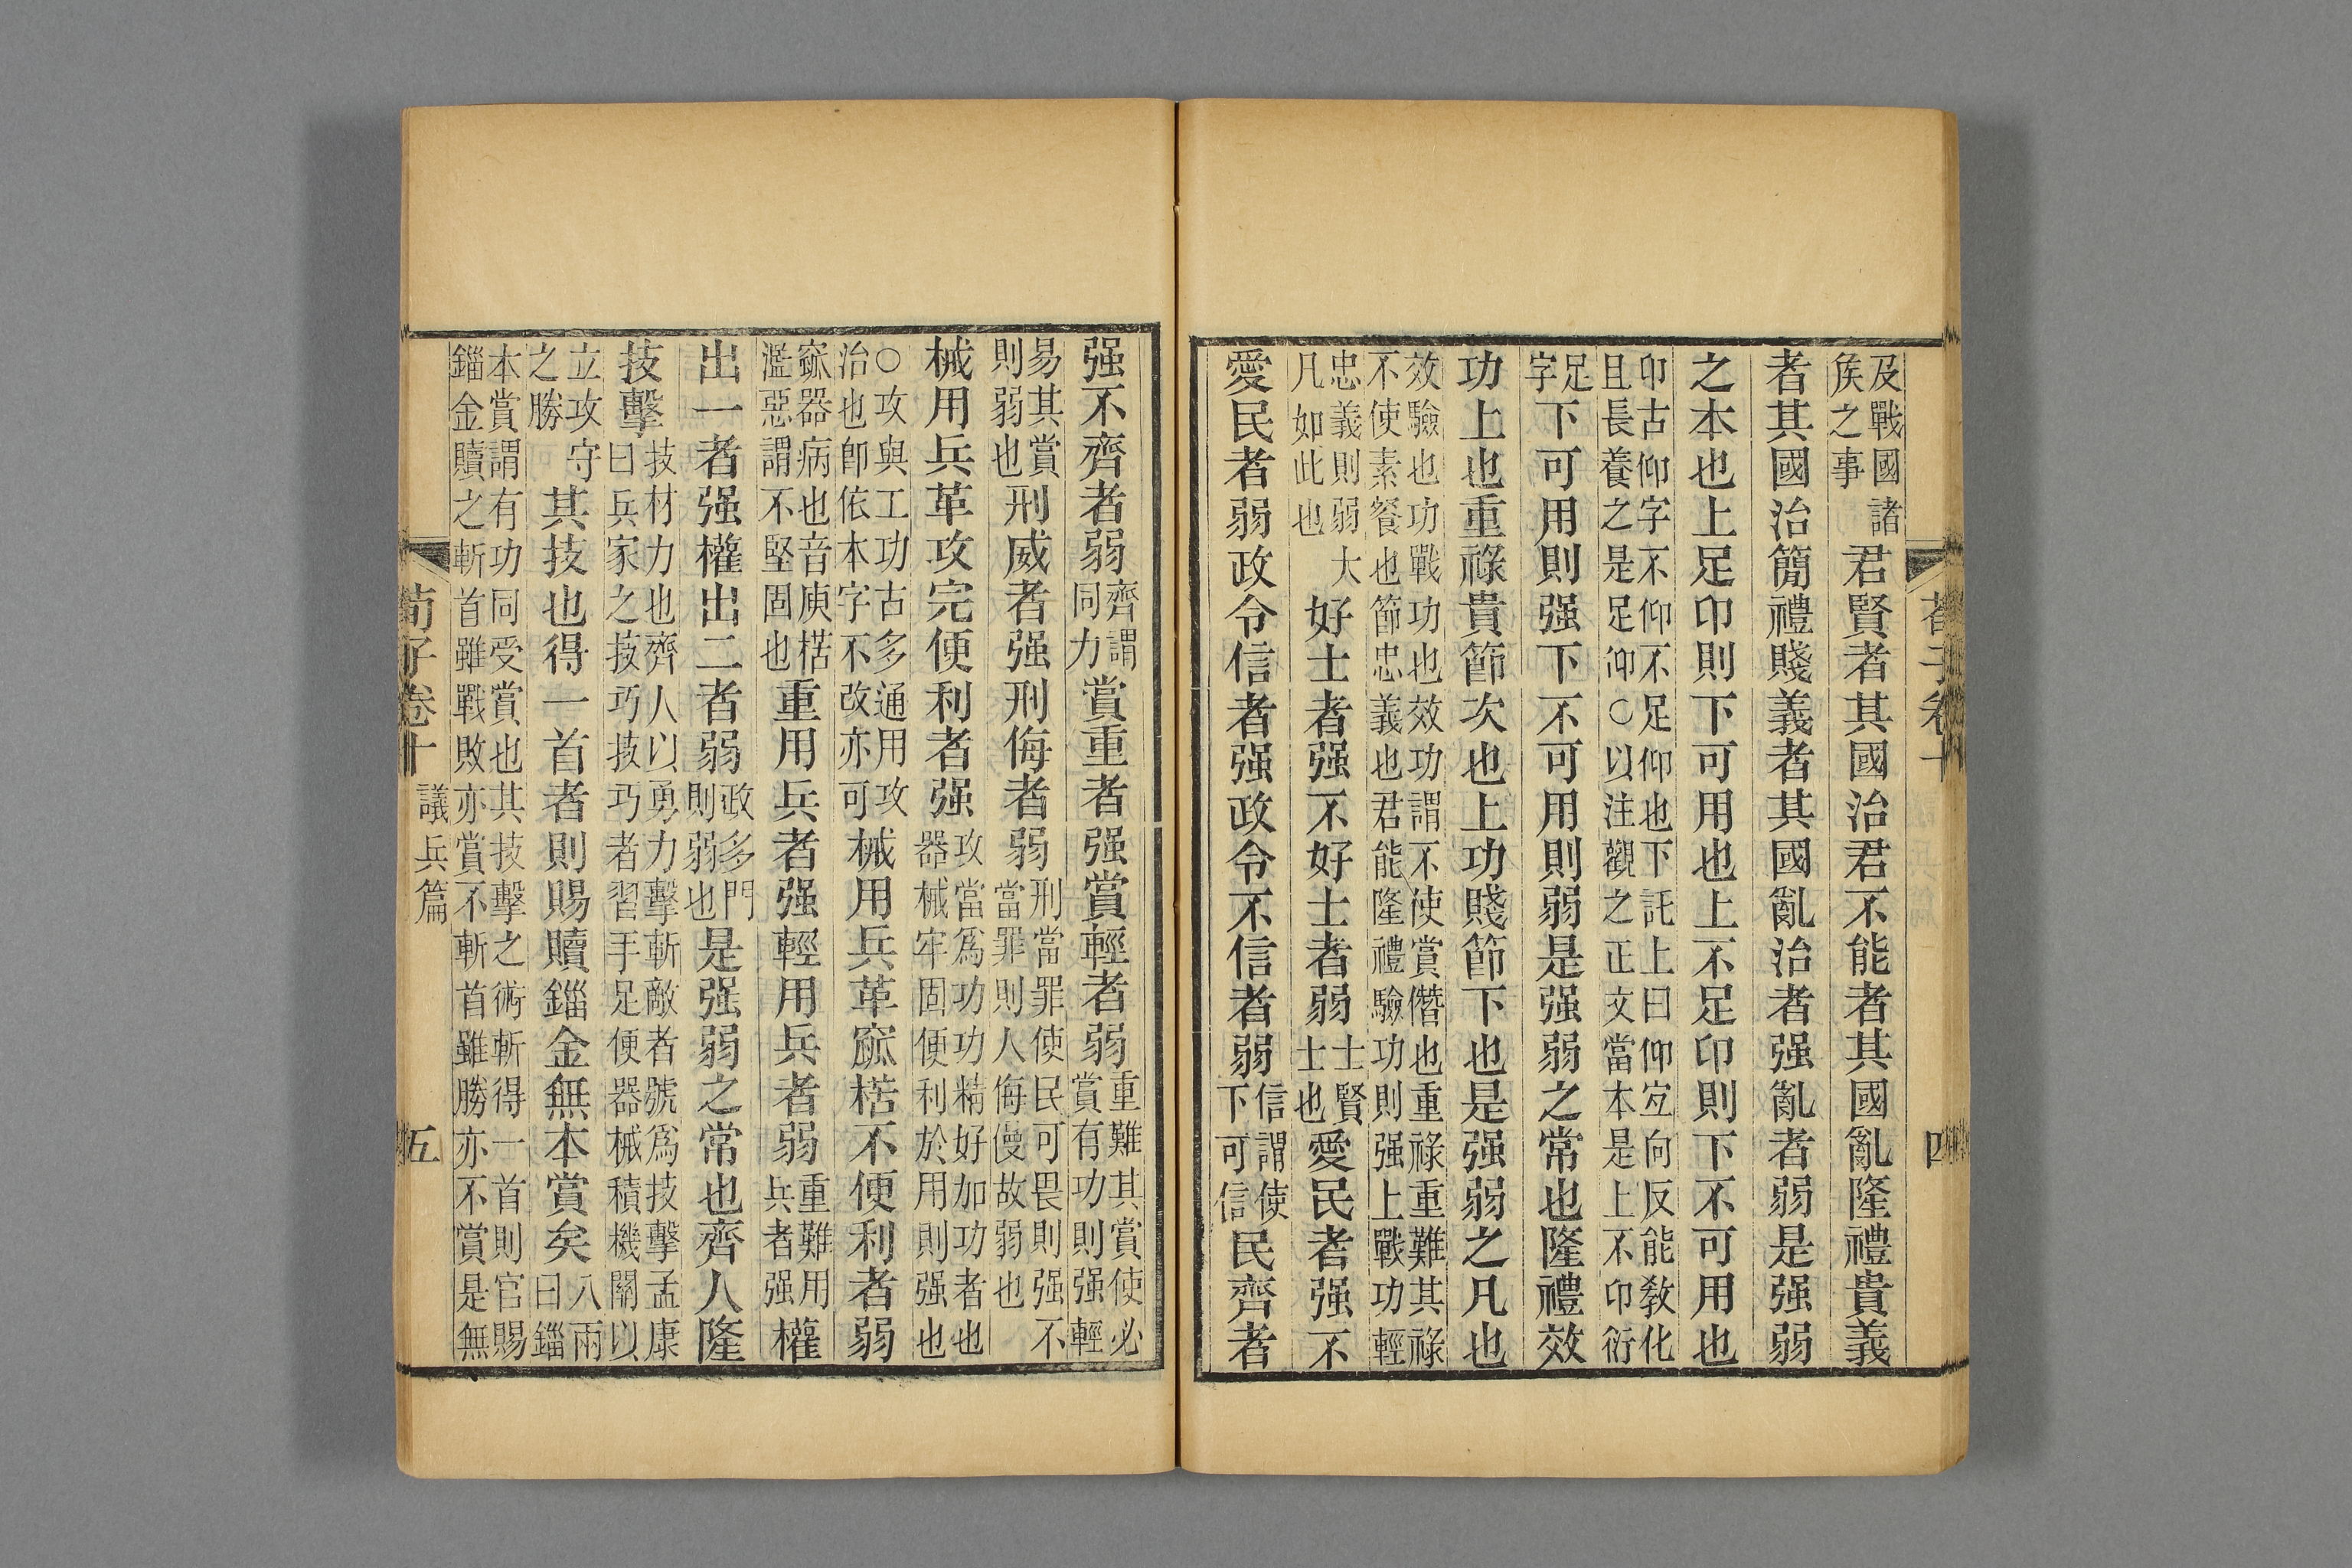 及戰國諸
矦之事
君賢者其國治君不能者其國亂隆禮貴義
者其國治簡禮賤義者其國亂治者强亂者弱是强弱
之本也上足卬則下可用也上不足卬則下不可用也
卬古仰字不仰不足仰也下託上曰仰宐向反能敎化
且長養之是足仰○以注觀之正文當本是上不卬衍
足
字
下可用則强下不可用則弱是强弱之常也隆禮效
功上也重祿貴節次也上功賤節下也是强弱之凡也
效驗也功戰功也效功謂不使賞僭也重祿重難其祿
不使素餐也節忠義也君能隆禮驗功則强上戰功輕
忠義則弱大
凡如此也
好士者强不好士者弱
士賢
士也
愛民者强不
愛民者弱政令信者强政令不信者弱
信謂使
下可信
民齊者
荀子卷十
四
强不齊者弱
齊謂
同力
賞重者强賞輕者弱
重難其賞使必
賞有功則强輕
易其賞
則弱也
刑威者强刑侮者弱
刑當罪使民可畏則强不
當罪則人侮慢故弱也
械用兵革攻完便利者强
攻當爲功功精好加功者也
器械牢固便利於用則强也
○攻與工功古多通用攻
治也卽依本字不改亦可
械用兵革窳楛不便利者弱
窳器病也音庾楛
濫惡謂不堅固也
重用兵者强輕用兵者弱
重難用
兵者强
權
出一者强權出二者弱
政多門
則弱也
是强弱之常也齊人隆
技擊
技材力也齊人以勇力擊斬敵者號爲技擊孟康
曰兵家之技巧技巧者習手足便器械積機關以
立攻守
之勝
其技也得一首者則賜贖錙金無本賞矣
八兩
曰錙
本賞謂有功同受賞也其技擊之術斬得一首則官賜
錙金贖之斬首雖戰敗亦賞不斬首雖勝亦不賞是無
荀子卷十
議兵篇
五